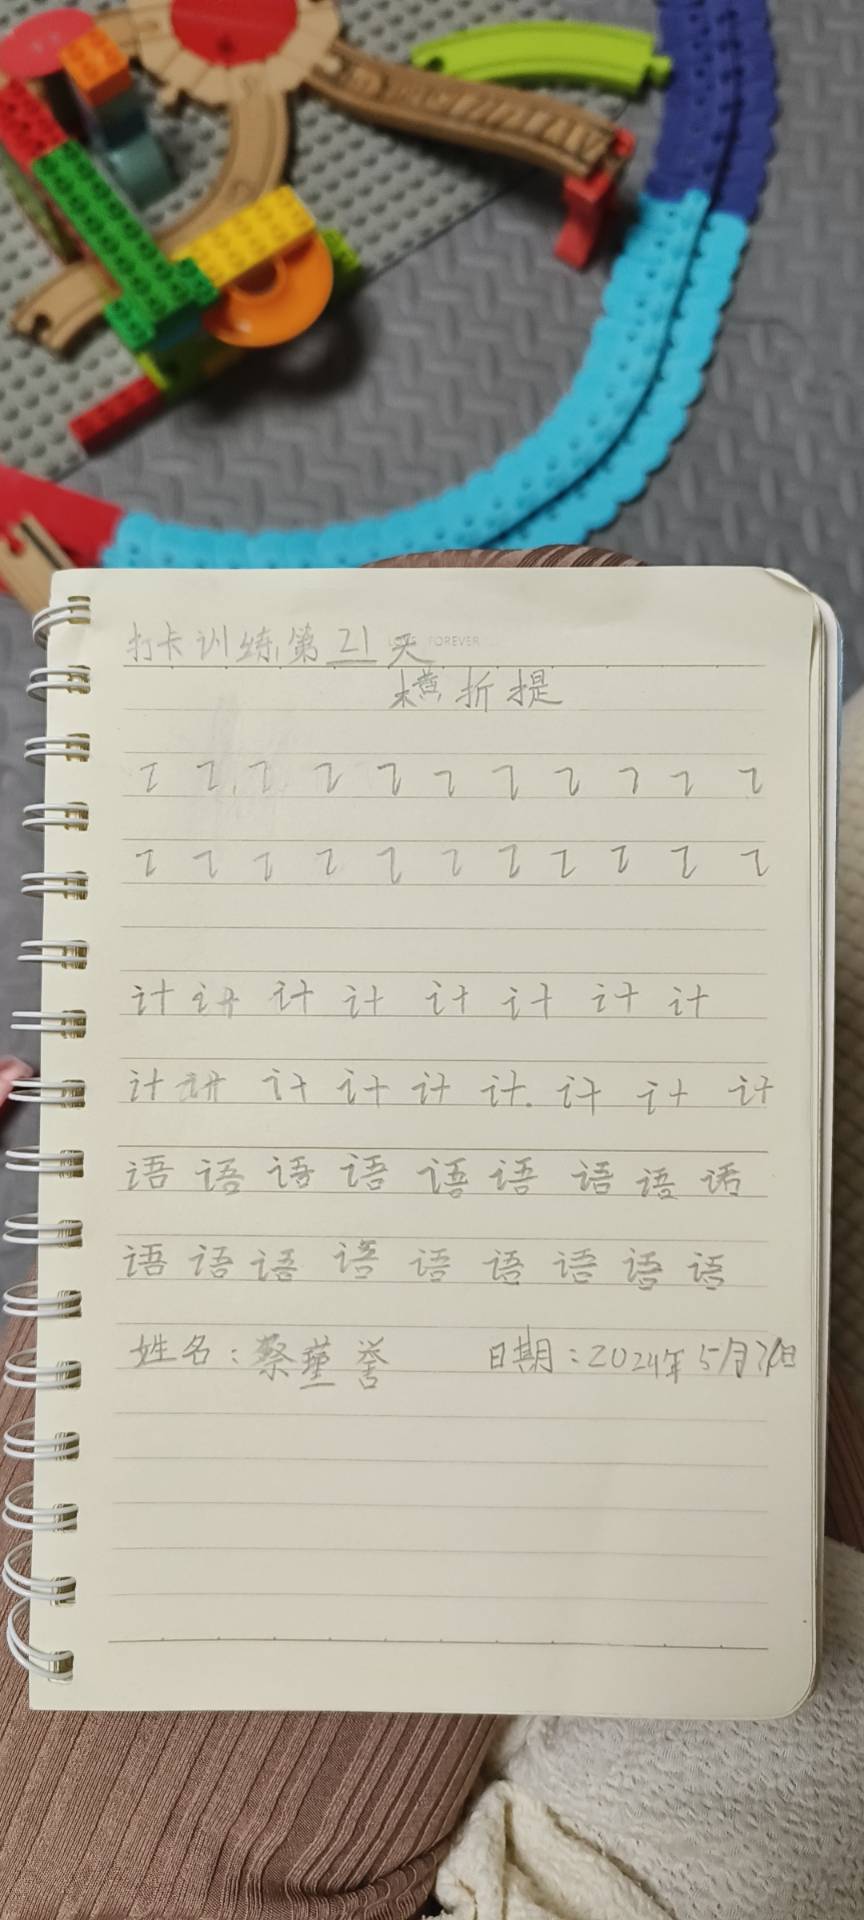 打卡训练第21天
FOREVER
横折提
计计计计计计计计
计计计计计计计计计
语语语语语语语语语
语语语语语语语语语
姓名：蔡瑾誉 日期：2024年5月31日